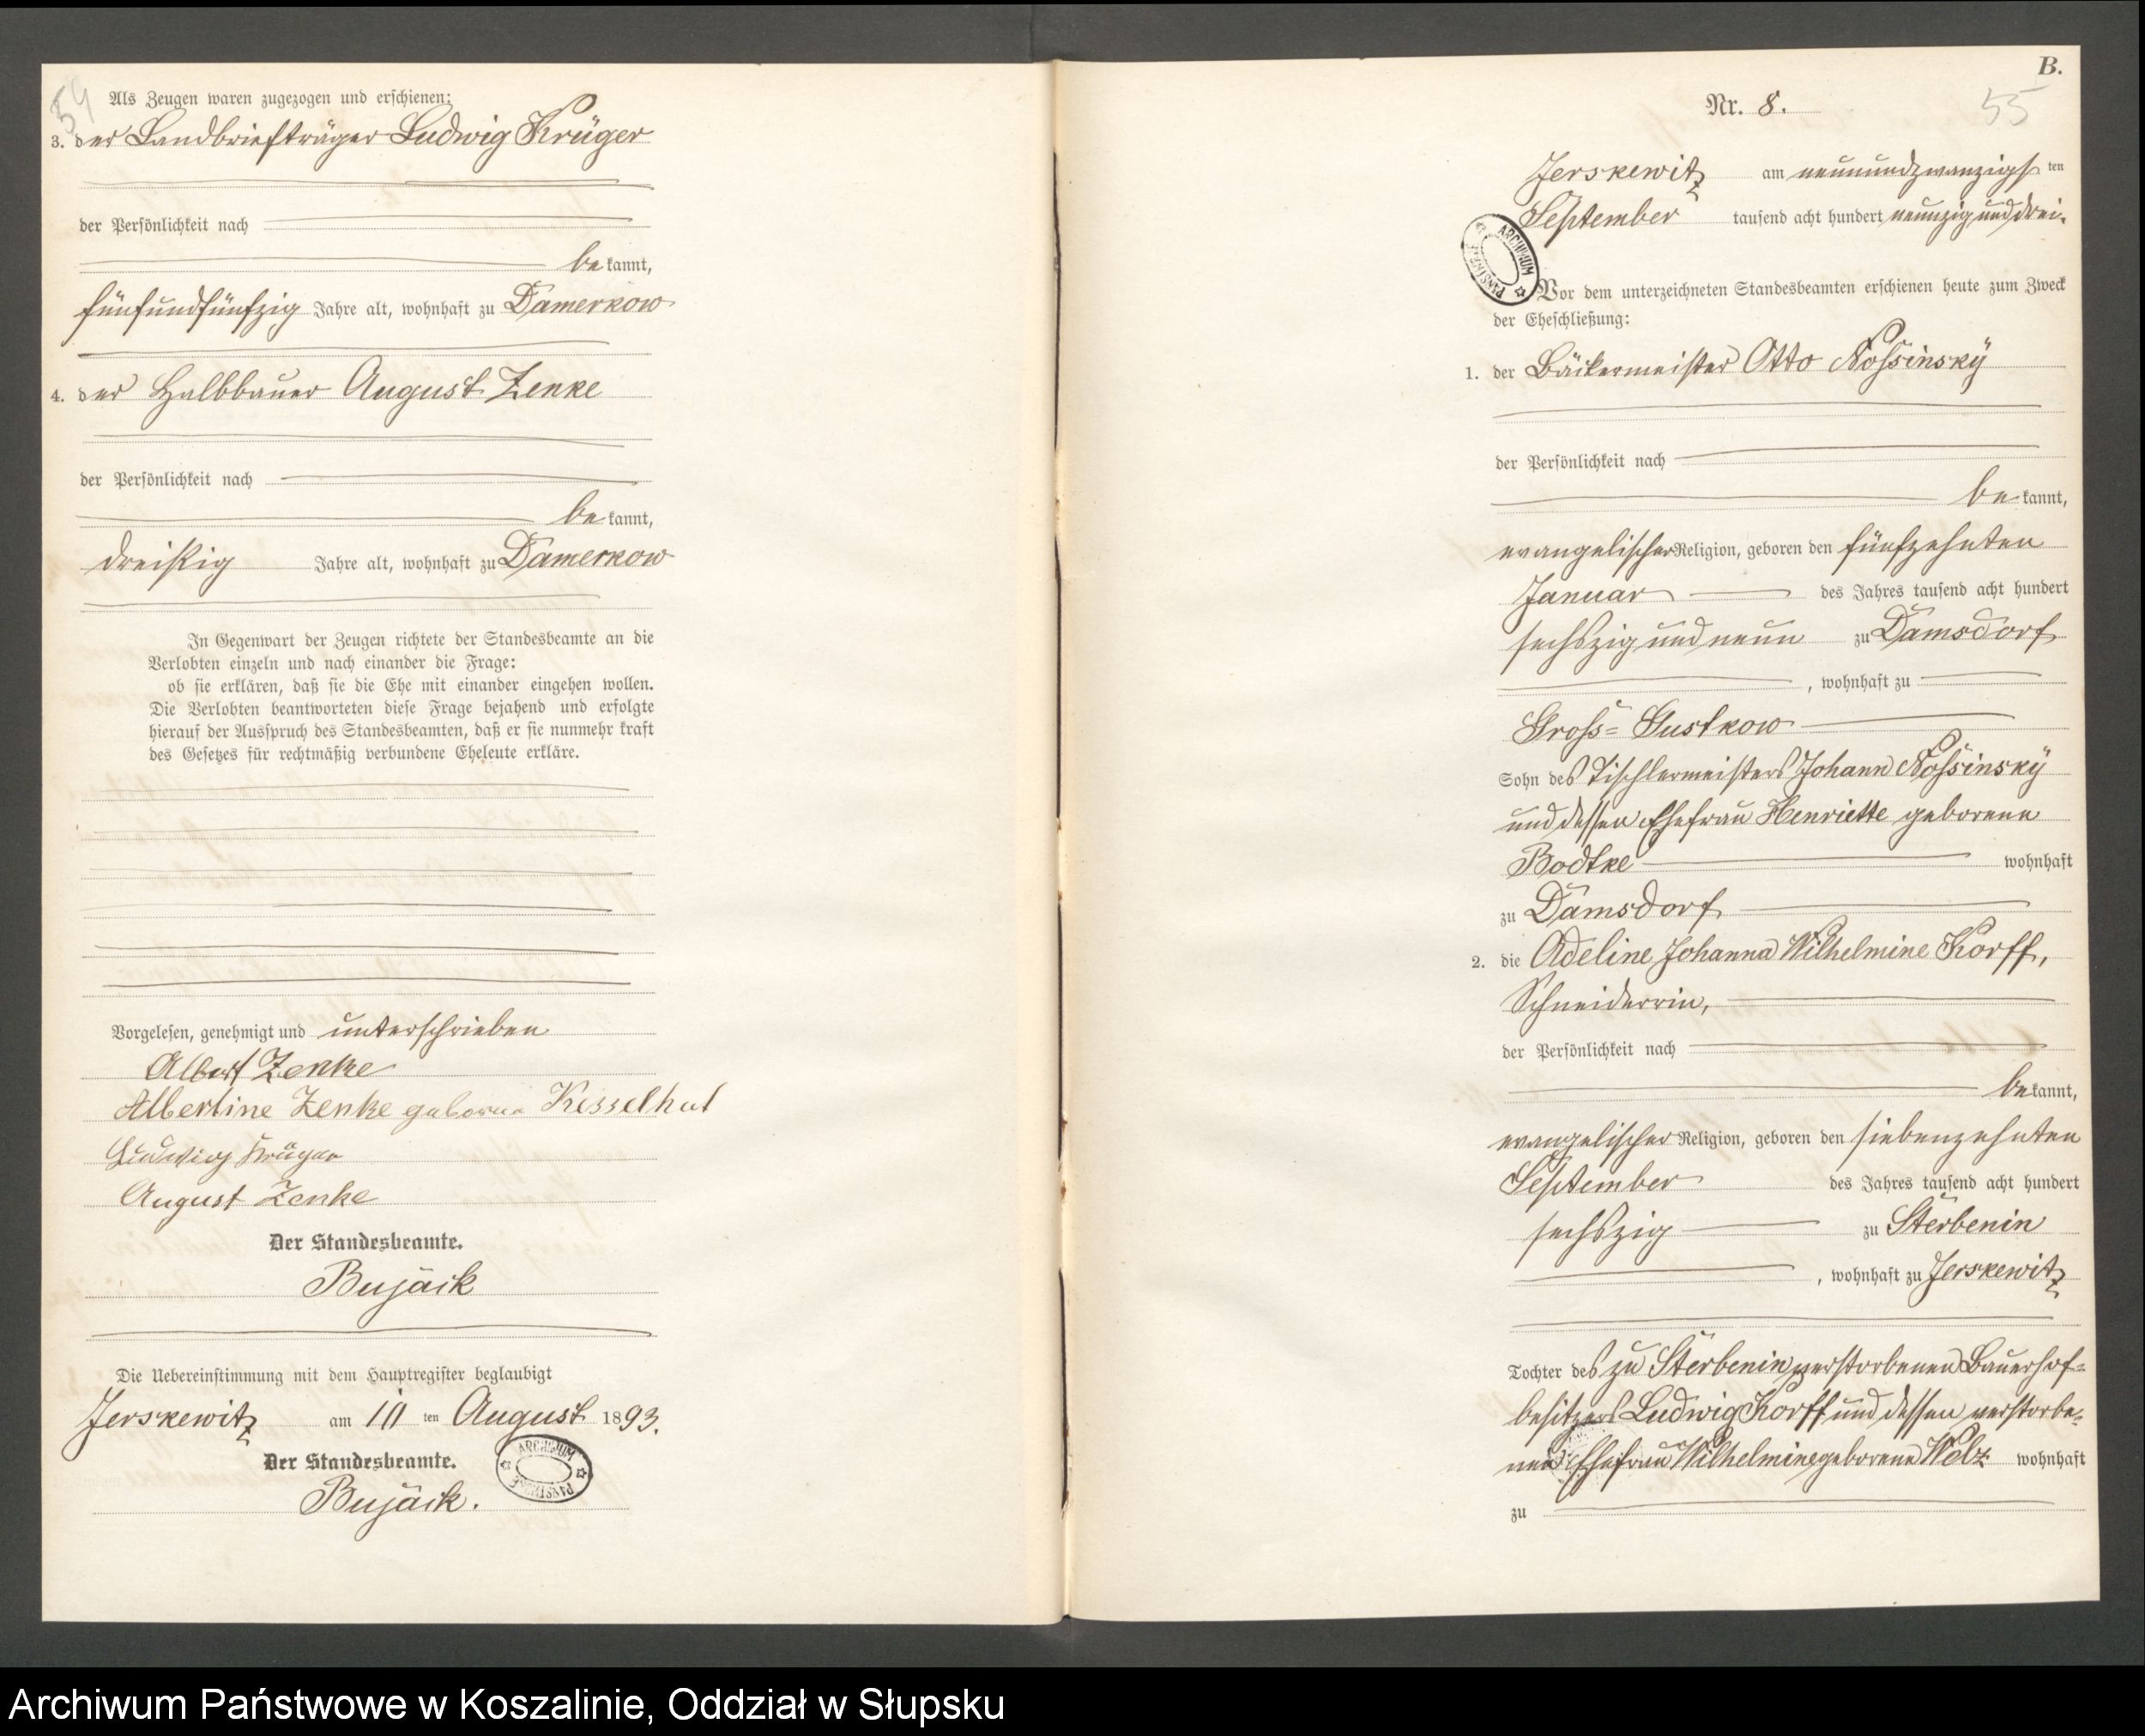 54
Als Zeugen waren zugezogen und erschienen:
3. der Landbriefträger Ludwig Krüger
der Persönlichkeit nach
bekannt,
fünfundfünfzig Jahre alt, wohnhaft zu Damerkow
4. der Halbbauer August Zenke
der Persönlichkeit nach
bekannt,
dreißig Jahre alt, wohnhaft zu Damerkow
In Gegenwart der Zeugen richtete der Standesbeamte an die
Verlobten einzeln und nach einander die Frage:
ob sie erklären, daß sie die Ehe mit einander eingehen wollen.
Die Verlobten beantworteten diese Frage bejahend und erfolgte
hierauf der Ausspruch des Standesbeamten, daß er sie nunmehr kraft
des Gesetzes für rechtmäßig verbundene Eheleute erkläre.
Vorgelesen, genehmigt und unterschrieben
Albert Zenke
Albertine Zenke geborne Kesselhut
Ludwig Krüger
August Zenke
Der Standesbeamte.
Bujäck
Die Uebereinstimmung mit dem Hauptregister beglaubigt
Jerskewitz am ten August 1893.
Der Standesbeamte.
ARCHIWUM PAŃSTWOWE
Bujäck.
B.
Nr. 8.
55
Jerskewitz am neunundzwanzigsten
September tausend acht hundert neunzig und drei.
ARCHIWUM PAŃSTWOWE
Vor dem unterzeichneten Standesbeamten erschienen heute zum Zweck
der Eheschließung:
1. der Bäckermeister Otto Nossinsky
der Persönlichkeit nach
bekannt,
evangelischer Religion, geboren den fünfzehnten
Januar des Jahres tausend acht hundert
sechszig und neun zu Damsdorf
, wohnhaft zu
Gross=Gustkow
Sohn des Tischlermeisters Johann Nossinsky
und dessen Ehefrau Henriette geborene
Bodtke wohnhaft
zu Damsdorf
2. die Adeline Johanna Wilhelmine Korff,
Schneiderrin,
der Persönlichkeit nach
bekannt,
evangelischer Religion, geboren den siebenzehnten
September des Jahres tausend acht hundert
sechszig zu Sterbenin
, wohnhaft zu Jerskewitz
Tochter des zu Sterbenin verstorbenen Bauerhof=
besitzers Ludwig Korff und dessen verstorbe=
nen Ehefrau Wilhelmine geborene Welz wohnhaft
zu
Archiwum Państwowe w Koszalinie, Oddział w Słupsku